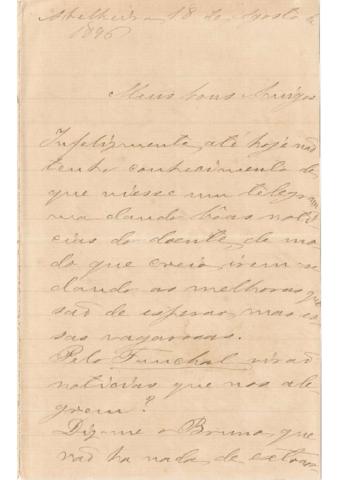 18 de Agosto de
1896
Meus bons Amigos
Infelizmente, até hoje não
tenho conhecimento de
que viesse um telegram
ma dando bôas noti
cias do doente, de mo
do que creio irem-se
dando as melhoras que
são de esperar, mas es
sas vagarosas.
Pelo Funchal virão
noticias que nos ale
grem?
Diz-me o Bruno que
não ha nada de extra